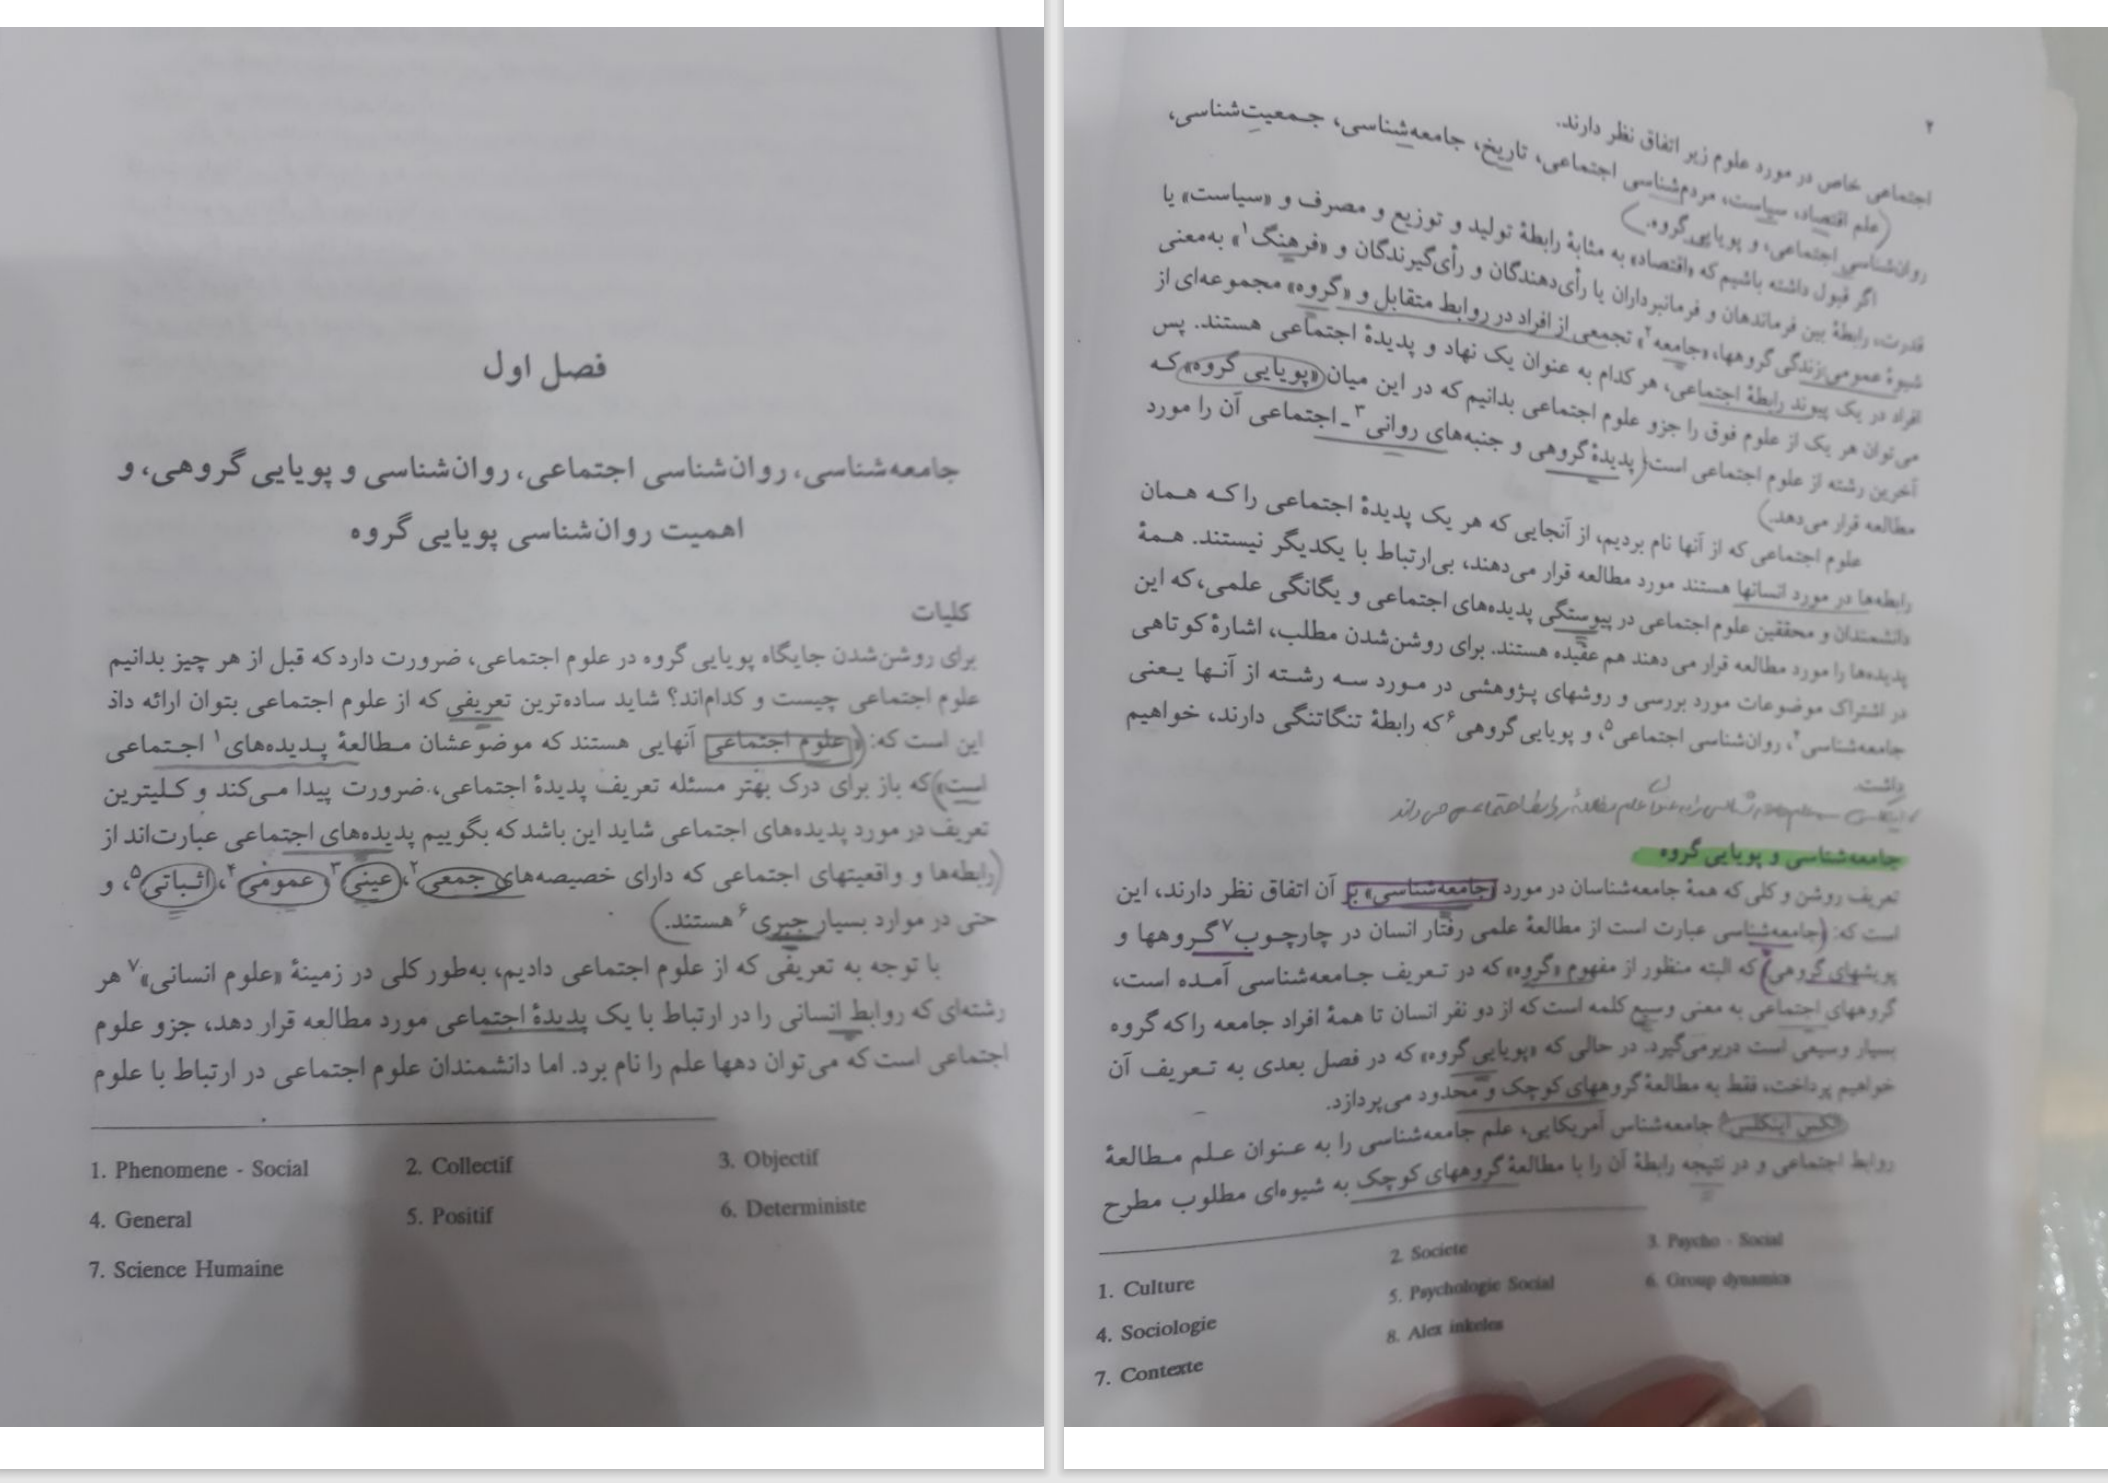 فصل اول
جامعه‌شناسی، روان‌شناسی اجتماعی، روان‌شناسی و پویایی گروهی، و
اهمیت روان‌شناسی پویایی گروه
کلیات
برای روشن‌شدن جایگاه پویایی گروه در علوم اجتماعی، ضرورت دارد که قبل از هر چیز بدانیم
علوم اجتماعی چیست و کدام‌اند؟ شاید ساده‌ترین تعریفی که از علوم اجتماعی بتوان ارائه داد
این است که: «علوم اجتماعی آنهایی هستند که موضوعشان مطالعهٔ پدیده‌های۱ اجتماعی
است» که باز برای درک بهتر مسئله تعریف پدیدهٔ اجتماعی، ضرورت پیدا می‌کند و کلیترین
تعریف در مورد پدیده‌های اجتماعی شاید این باشد که بگوییم پدیده‌های اجتماعی عبارت‌اند از
(رابطه‌ها و واقعیتهای اجتماعی که دارای خصیصه‌های جمعی۲، عینی۳، عمومی۴، اثباتی۵، و
حتی در موارد بسیار جبری۶ هستند.)
با توجه به تعریفی که از علوم اجتماعی دادیم، به‌طور کلی در زمینهٔ «علوم انسانی»۷ هر
رشته‌ای که روابط انسانی را در ارتباط با یک پدیدهٔ اجتماعی مورد مطالعه قرار دهد، جزو علوم
اجتماعی است که می‌توان دهها علم را نام برد. اما دانشمندان علوم اجتماعی در ارتباط با علوم
1. Phenomene - Social 2. Collectif 3. Objectif
4. General 5. Positif 6. Deterministe
7. Science Humaine
۲
اجتماعی خاص در مورد علوم زیر اتفاق نظر دارند.
(علم اقتصاد، سیاست، مردم‌شناسی اجتماعی، تاریخ، جامعه‌شناسی، جمعیت‌شناسی،
روان‌شناسی اجتماعی، و پویایی گروه.)
اگر قبول داشته باشیم که «اقتصاد» به مثابهٔ رابطهٔ تولید و توزیع و مصرف و «سیاست» یا
قدرت، رابطهٔ بین فرماندهان و فرمانبرداران یا رأی‌دهندگان و رأی‌گیرندگان و «فرهنگ۱» به‌معنی
شیوهٔ عمومی زندگی گروهها، «جامعه۲» تجمعی از افراد در روابط متقابل و «گروه» مجموعه‌ای از
افراد در یک پیوند رابطهٔ اجتماعی، هر کدام به عنوان یک نهاد و پدیدهٔ اجتماعی هستند. پس
می‌توان هر یک از علوم فوق را جزو علوم اجتماعی بدانیم که در این میان «پویایی گروه» که
آخرین رشته از علوم اجتماعی است (پدیدهٔ گروهی و جنبه‌های روانی۳ ـ اجتماعی آن را مورد
مطالعه قرار می‌دهد.)
علوم اجتماعی که از آنها نام بردیم، از آنجایی که هر یک پدیدهٔ اجتماعی را که همان
رابطه‌ها در مورد انسانها هستند مورد مطالعه قرار می‌دهند، بی‌ارتباط با یکدیگر نیستند. همهٔ
دانشمندان و محققین علوم اجتماعی در پیوستگی پدیده‌های اجتماعی و یگانگی علمی، که این
پدیده‌ها را مورد مطالعه قرار می دهند هم عقیده هستند. برای روشن‌شدن مطلب، اشارهٔ کوتاهی
در اشتراک موضوعات مورد بررسی و روشهای پژوهشی در مورد سه رشته از آنها یعنی
جامعه‌شناسی۴، روان‌شناسی اجتماعی۵، و پویایی گروهی۶ که رابطهٔ تنگاتنگی دارند، خواهیم
داشت.
جامعه‌شناسی و پویایی گروه
تعریف روشن و کلی که همهٔ جامعه‌شناسان در مورد «جامعه‌شناسی» بر آن اتفاق نظر دارند، این
است که: (جامعه‌شناسی عبارت است از مطالعهٔ علمی رفتار انسان در چارچوب۷ گروهها و
پویشهای گروهی) که البته منظور از مفهوم «گروه» که در تعریف جامعه‌شناسی آمده است،
گروههای اجتماعی به معنی وسیع کلمه است که از دو نفر انسان تا همهٔ افراد جامعه را که گروه
بسیار وسیعی است دربرمی‌گیرد. در حالی که «پویایی گروه» که در فصل بعدی به تعریف آن
خواهیم پرداخت، فقط به مطالعهٔ گروههای کوچک و محدود می‌پردازد.
الکس اینکلس۸ جامعه‌شناس آمریکایی، علم جامعه‌شناسی را به عنوان علم مطالعهٔ
روابط اجتماعی و در نتیجه رابطهٔ آن را با مطالعهٔ گروههای کوچک به شیوه‌ای مطلوب مطرح
1. Culture 2. Societe 3. Psycho - Social
4. Sociologie 5. Psychologie Social 6. Group dynamics
7. Contexte 8. Alex inkeles